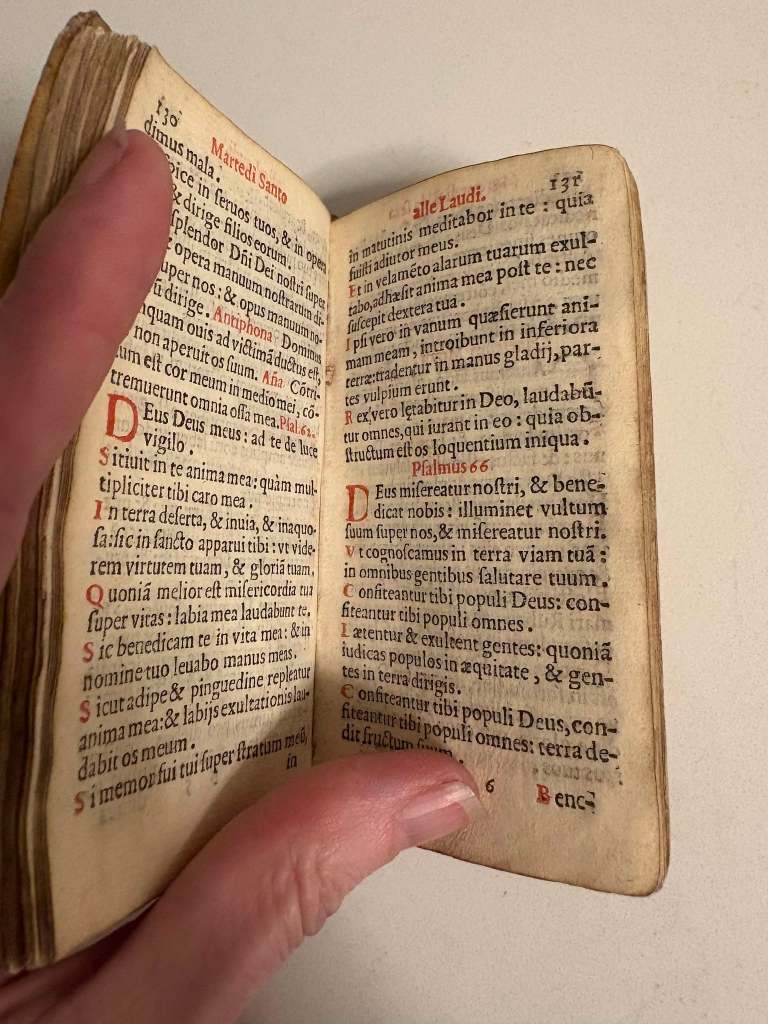 130
Martedì Santo
dimus mala.
in seruos tuos, & in opera
& dirige filios eorum.
splendor Dñi Dei nostri super
opera manuum nostrarum di-
super nos: & opus manuum no-
dirige. Antiphona Dominus
ouis ad victimã ductus est,
non aperuit os suum. Aña Cõtri-
est cor meum in medio mei, cõ-
tremuerunt omnia ossa mea. Psal. 62.
DEus Deus meus: ad te de luce
vigilo.
Sitiuit in te anima mea: quàm mul-
tipliciter tibi caro mea.
In terra deserta, & inuia, & inaquo-
sa: sic in sancto apparui tibi: vt vide-
rem virtutem tuam, & gloriã tuam.
Quoniã melior est misericordia tua
super vitas: labia mea laudabunt te.
Sic benedicam te in vita mea: & in
nomine tuo leuabo manus meas.
Sicut adipe & pinguedine repleatur
anima mea: & labijs exultationis lau-
dabit os meum.
Si memor fui tui super stratum meũ,
in
alle Laudi.
131
in matutinis meditabor in te: quia
fuisti adiutor meus.
Et in velamẽto alarum tuarum exul-
tabo, adhæsit anima mea post te: nec
suscepit dextera tua.
Ipsi vero in vanum quæsierunt ani-
mam meam, introibunt in inferiora
terræ: tradentur in manus gladij, par-
tes vulpium erunt.
Rex vero lętabitur in Deo, laudabũ-
tur omnes, qui iurant in eo: quia ob-
structum est os loquentium iniqua.
Psalmus 66
DEus misereatur nostri, & bene-
dicat nobis: illuminet vultum
suum super nos, & misereatur nostri.
Vt cognoscamus in terra viam tuã:
in omnibus gentibus salutare tuum.
Confiteantur tibi populi Deus: con-
fiteantur tibi populi omnes.
Lætentur & exultent gentes: quoniã
iudicas populos in æquitate, & gen-
tes in terra dirigis.
Confiteantur tibi populi Deus, con-
fiteantur tibi populi omnes: terra de-
dit fructum suum.
6 Bene-